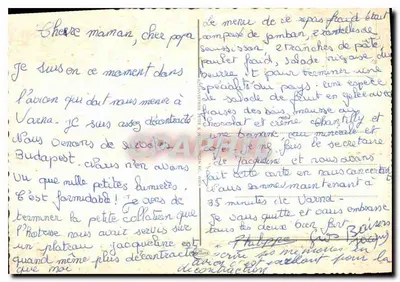 Chère maman, cher papa
Je suis en ce moment dans
l'avion qui doit nous mener à
Varna. Je suis assez décontracté
Nous venons de survoler
Budapest. Nous n'en avons
vu que mille petites lumières.
C'est formidable! Je viens de
terminer la petite collation que
l'hôtesse nous avait servie sur
un plateau jacqueline est
quand même plus décontractée
que moi
Le menu de ce repas froid était
composé de jambon, 2 rondelles de
saucisson, 2 tranches de pâté,
poulet froid, salade niçoise
beurre et pour terminer une
spécialité du pays: une espèce
de salade de fruit en gelée avec
fraises des bois, mousse au
chocolat et crème chantilly et
une eau minérale et
secrétaire
de Jacqueline et nous avons
fait cette carte en nous concertant
Nous sommes maintenant à
35 minutes de Varna.
Je vous quitte et vous embrasse
tous les deux bien fort
Philippe Gros Baisers
Jacqueline
écrire ses mémoires en
avion est excellent pour la
décontraction